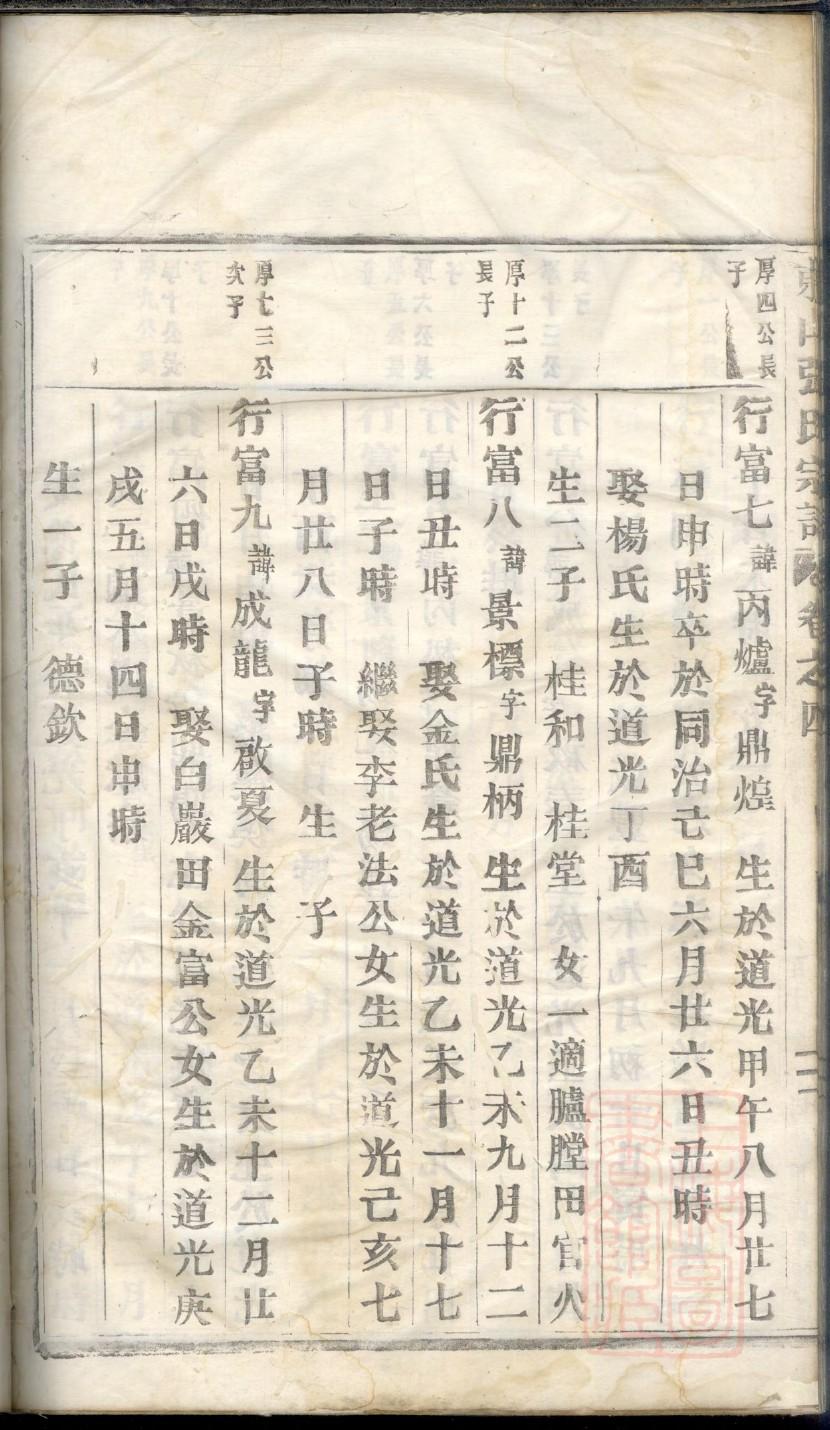 張氏宗譜 卷之四
厚四公長
子
行富七諱丙爐字鼎煌 生於道光甲午八月廿七
日申時卒於同治己巳六月廿六日丑時
娶楊氏生於道光丁酉
生二子 桂和 桂堂 女一適臚膛田官火
厚十二公
長子
行富八諱景標字鼎柄 生於道光乙未九月十二
日丑時 娶金氏生於道光乙未十一月十七
日子時 繼娶李老法公女生於道光己亥七
月廿八日子時 生 子
厚七三公
次子
行富九諱成龍字啟夏 生於道光乙未十二月廿
六日戌時 娶白巖田金富公女生於道光庚
戌五月十四日申時
生一子 德欽